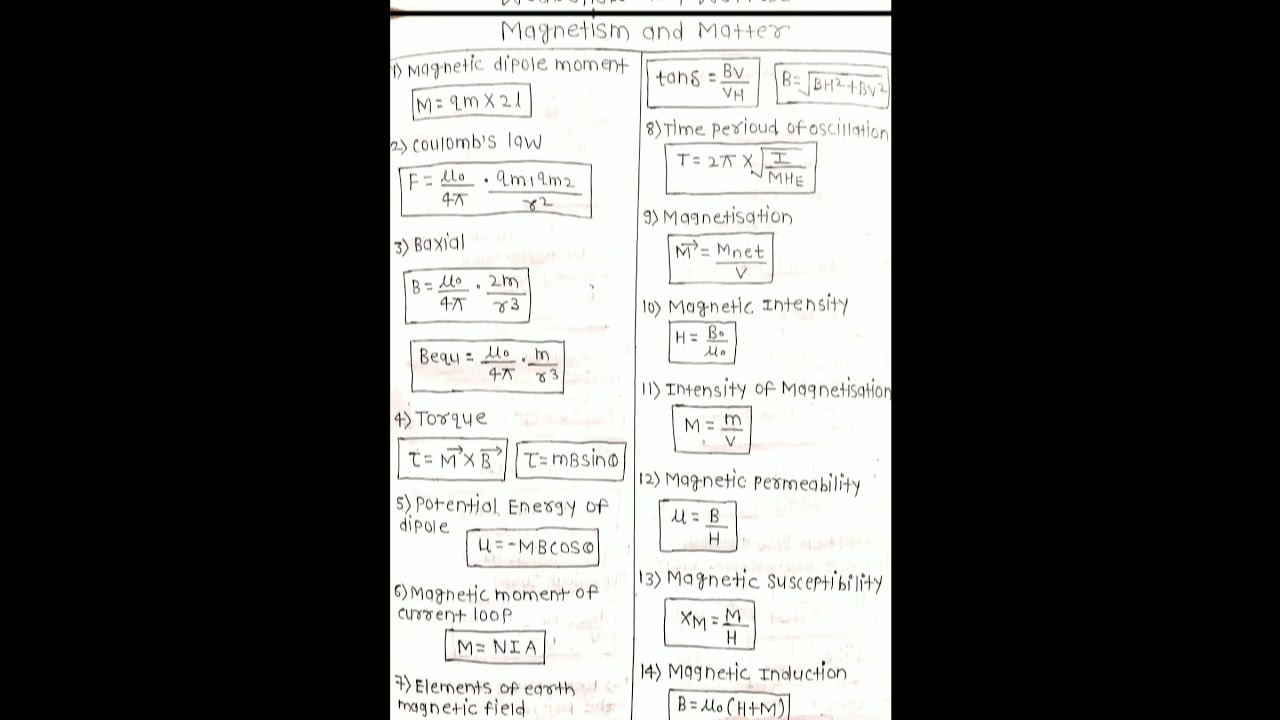 Magnetism and Matter
1) Magnetic dipole moment
M = qm X 2l
2) Coulomb's law
F = μ0/4π · qm1qm2/r2
3) Baxial
B = μ0/4π · 2m/r3
Bequ = μ0/4π · m/r3
4) Torque
τ = M→ X B→ τ = mBsinθ
5) Potential Energy of
dipole
u = -MBcosθ
6) Magnetic moment of
current loop
M = NIA
7) Elements of earth
magnetic field
tanδ = BV/VH B = √BH2+BV2
8) Time perioud of oscillation
T = 2π X √I/MHE
9) Magnetisation
M→ = Mnet/V
10) Magnetic Intensity
H = B0/μ0
11) Intensity of Magnetisation
M = m/V
12) Magnetic permeability
μ = B/H
13) Magnetic susceptibility
XM = M/H
14) Magnetic Induction
B = μ0(H+M)